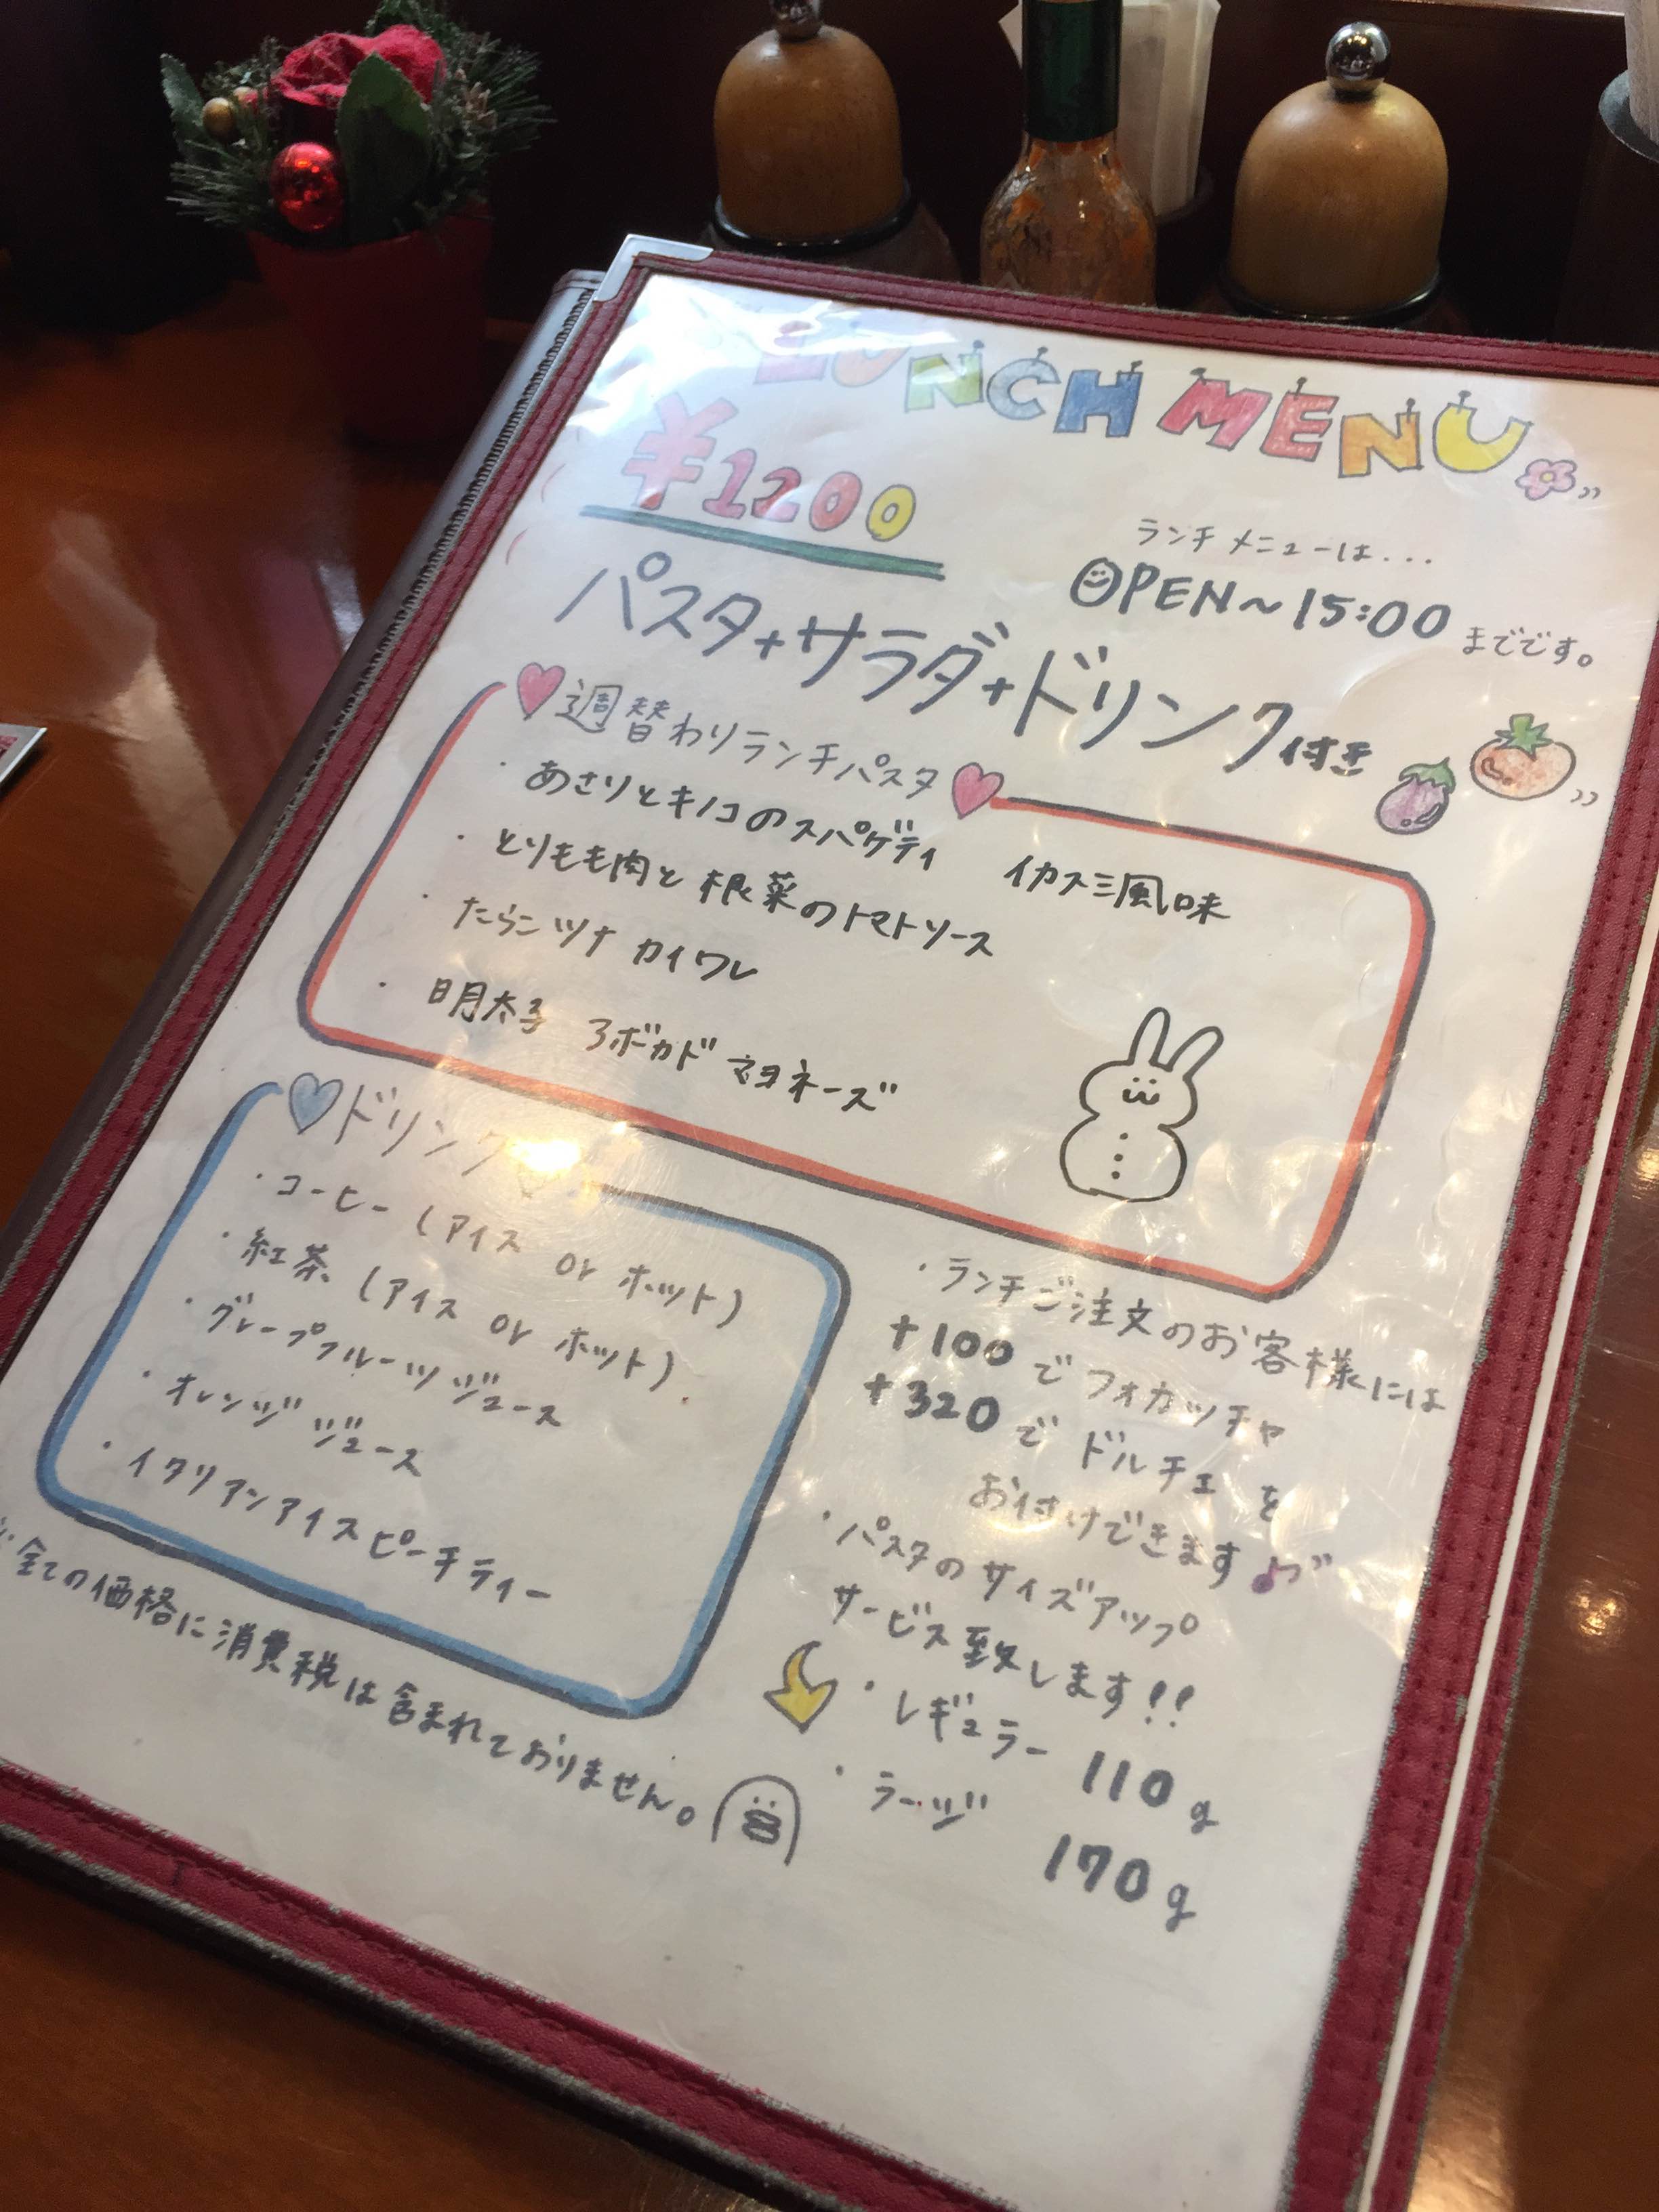 LUNCH MENU
¥1200
ランチメニューは...
OPEN〜15:00 までです。
パスタ+サラダ+ドリンク付き
週替わりランチパスタ
・あさりとキノコのスパゲティ イカスミ風味
・とりもも肉と根菜のトマトソース
・たらこ ツナ カイワレ
・明太子 アボカド マヨネーズ
ドリンク
・コーヒー (アイス or ホット)
・紅茶 (アイス or ホット)
・グレープフルーツジュース
・オレンジジュース
・イタリアンアイスピーチティー
・ランチご注文のお客様には
+100 で フォカッチャ
+320 で ドルチェ を
お付けできます♪
・パスタのサイズアップ
サービス致します!!
・レギュラー 110g
・ラージ 170g
全ての価格に消費税は含まれておりません。